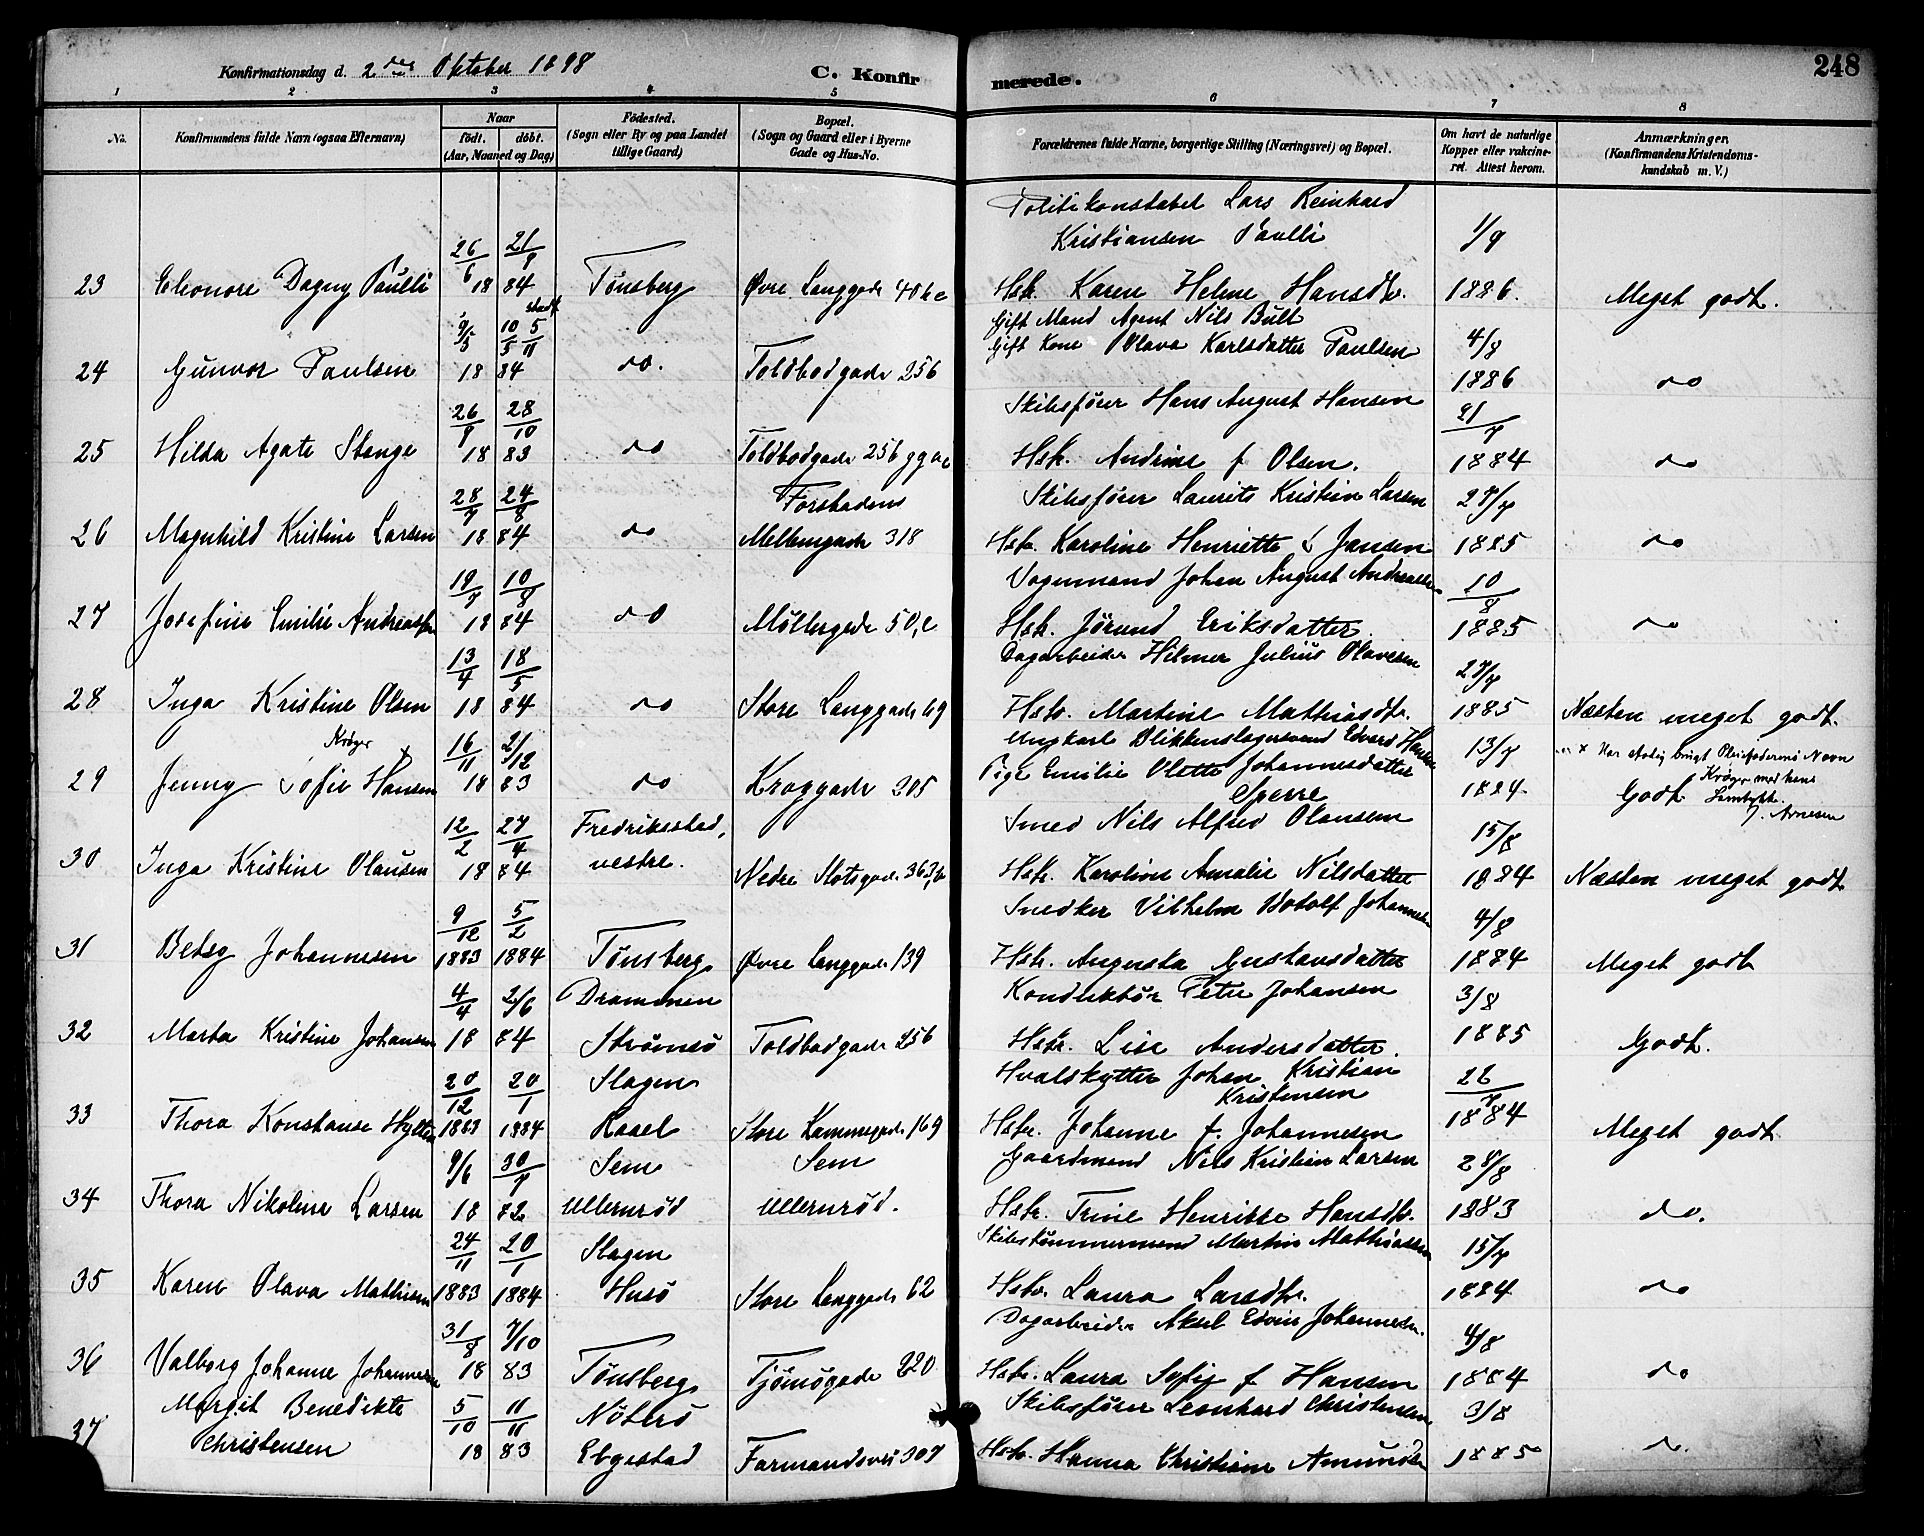 248
Konfirmationsdag d. 2den Oktober 1898 C. Konfir merede.
1 2 3 4 5 6 7 8
No. Konfirmandens fulde Navn (ogsaa Efternavn) Naar Fødested. Bopæl. Forældrenes fulde Navne, borgerlige Stilling (Næringsvei) og Bopæl. Om havt de naturlige Anmærkninger.
født. døbt. (Sogn eller By og paa Landet (Sogn og Gaard eller i Byerne Kopper eller vakcine- (Konfirmandens Kristendoms-
(Aar, Maaned og Dag) tillige Gaard) Gade og Hus-No. ret. Attest herom. kundskab m. V.)
Politikonstabel Lars Reinhard
Kristiansen Paulli 1/9
26/6 21/9
23 Eleonore Dagny Paulli 18 84 Tønsberg Øvre Langgade 40 Hstr. Karen Helene Hansdtr. 1886. Meget godt.
9/5 10/5 stadf. 5/11 Gift Mand Agent Nils Bull
Gift Kone Olava Karlsdatter Paulsen 4/8
24 Gunvor Paulsen 18 84 do. Toldbodgade 256 1886 do
26/9 28/10 Skibsfører Hans August Hansen 21/7
25 Hilda Agate Stange 18 83 do Toldbodgade 256 Hstr. Andrine f Olsen. 1884 do
28/7 24/8 Forstadens Skibsfører Laurits Kristian Larsen 27/7
26 Magnhild Kristine Larsen 18 84 do Mellemgade 318 Hstr. Karoline Henriette f Jansen 1885 do
19/7 10/8 Vognmand Johan August Andreassen 10/8
27 Josefine Emilie Andreassen 18 84 do Møllergade 50,c Hstr. Jørund Eriksdatter 1885 do
13/4 18/5 Dagarbeider Hilmer Julius Olavesen 27/7
28 Inga Kristine Olsen 18 84 do Store Langgade 69 Hstr. Martine Mathiasdtr. 1885 Næsten meget godt.
Krøger x 16/11 21/12 Ungkarl Blikkenslagersvend Edvard Hansen 13/7 x Har stadig brugt Pleiefaderens Navn
29 Jenny Sofie Hansen 18 83 do Kroggade 205 Pige Emilie Olette Johannesdatter 1884 Krøger med hans
Sperre Godt Samtykke.
12/2 27/4 Fredriksstad, Smed Nils Alfred Olausen 15/8 J. Arnesen
30 Inga Kristine Olausen 18 84 vestre. Nedre Slotsgade 363,b Hstr. Karoline Amalie Nilsdatter 1884 Næsten meget godt
9/12 5/2 Snedker Vilhelm Botolf Johannesen 4/8
31 Betsy Johannesen 1883 1884 Tønsberg Øvre Langgade 139 Hstr. Augusta Gustavsdatter 1884 Meget godt
4/4 2/6 Drammen Konduktør Peter Johansen 3/8
32 Marta Kristine Johansen 18 84 Strømsø Toldbodgade 256 Hstr. Lise Andersdatter. 1885 Godt.
20/12 20/1 Slagen Hvalskytter Johan Kristian 26/7
Kristensen
33 Thora Konstanse Hylten 1883 1884 Raael Store Kammegade 169 Hstr. Johanne f. Johannesen 1884 Meget godt
9/6 30/7 Sem Sem Gaardmand Nils Kristian Larsen 28/8
34 Thora Nikoline Larsen 18 82 Ullernrød Ullernrød. Hstr. Trine Henrikke Hansdtr. 1883 do.
24/11 20/1 Slagen Skibstømmermand Martin Mathiassen 15/7
35 Karen Olava Mathisen 1883 1884 Husø Store Langgade 62 Hstr. Laura Larsdtr. 1884 do
31/8 7/10 Dagarbeider Aksel Edvin Johannesen. 4/8
36 Valborg Johanne Johannesen 18 83 Tønsberg Tjømøgade 220 Hstr. Laura Sofie f Hansen 1884 do
Margit Benedikte 5/10 11/11 Nøterø Skibsfører Leonhard Christensen 3/8
37 Christensen 18 83 Elgestad Farmandsvei 307 Hstr. Hanna Christiane Amundsen 1885 do.